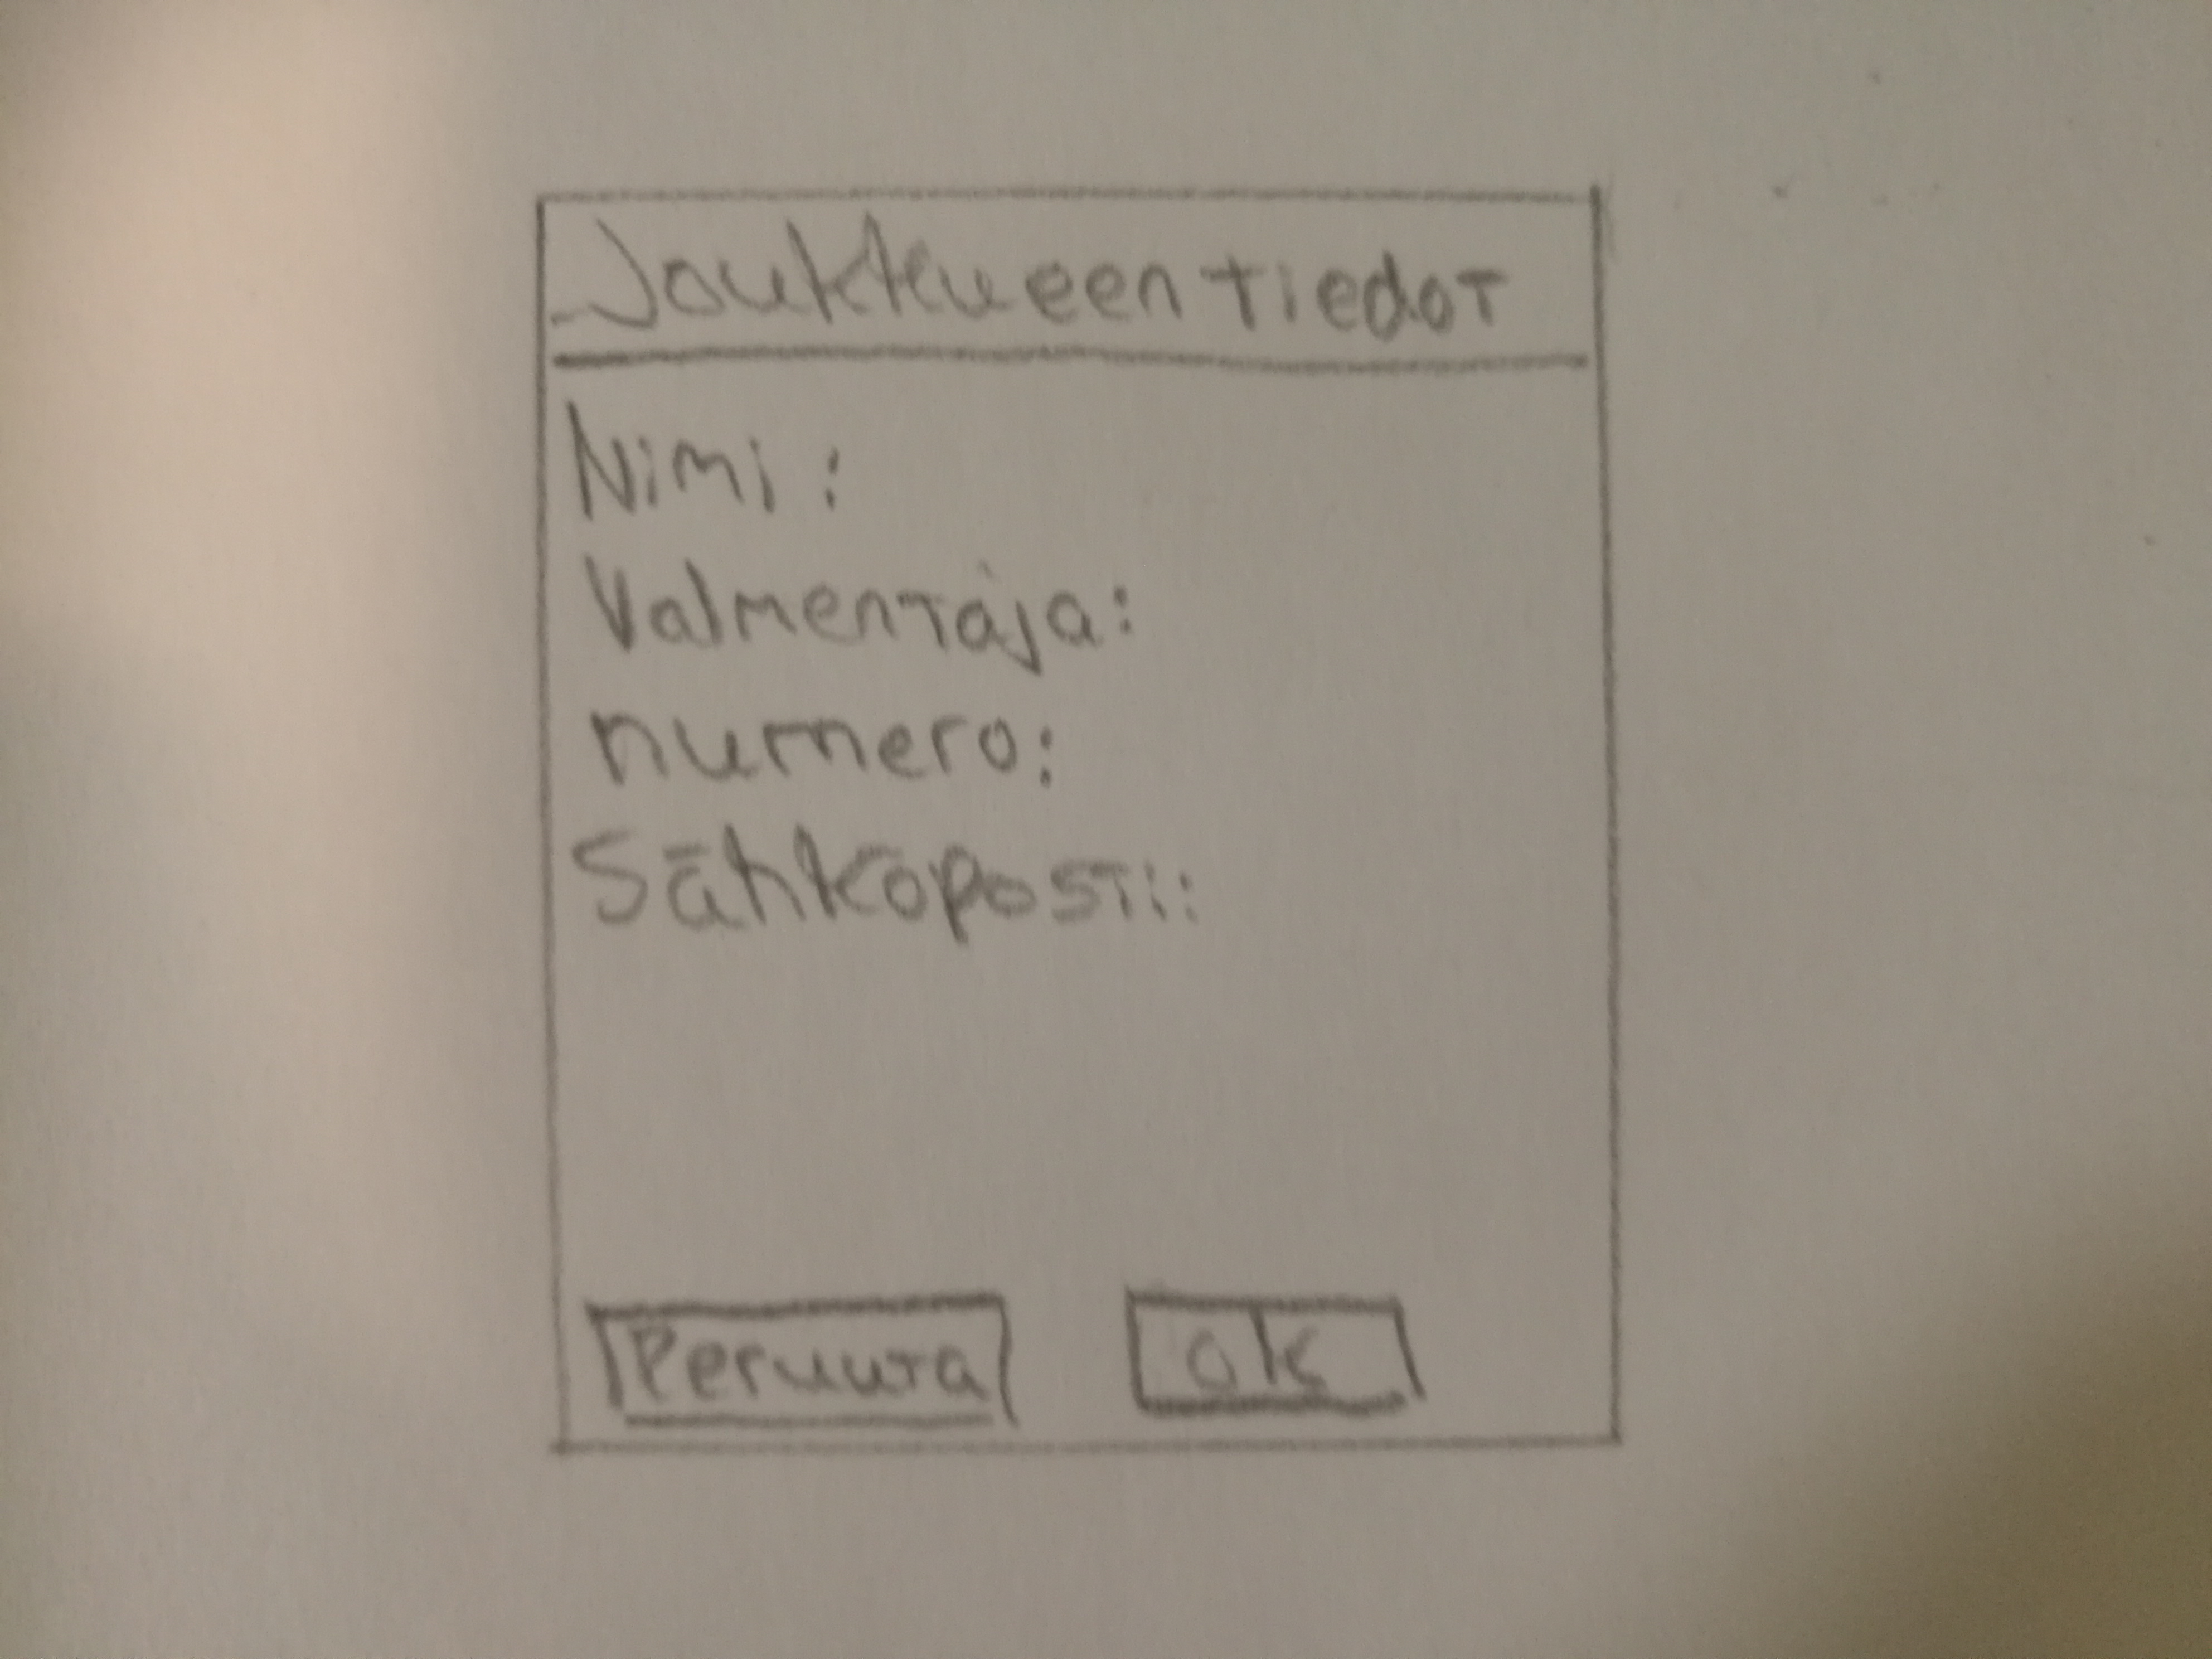 Joukkueen tiedot
Nimi:
Valmentaja:
numero:
Sähköposti:
Peruuta
ok